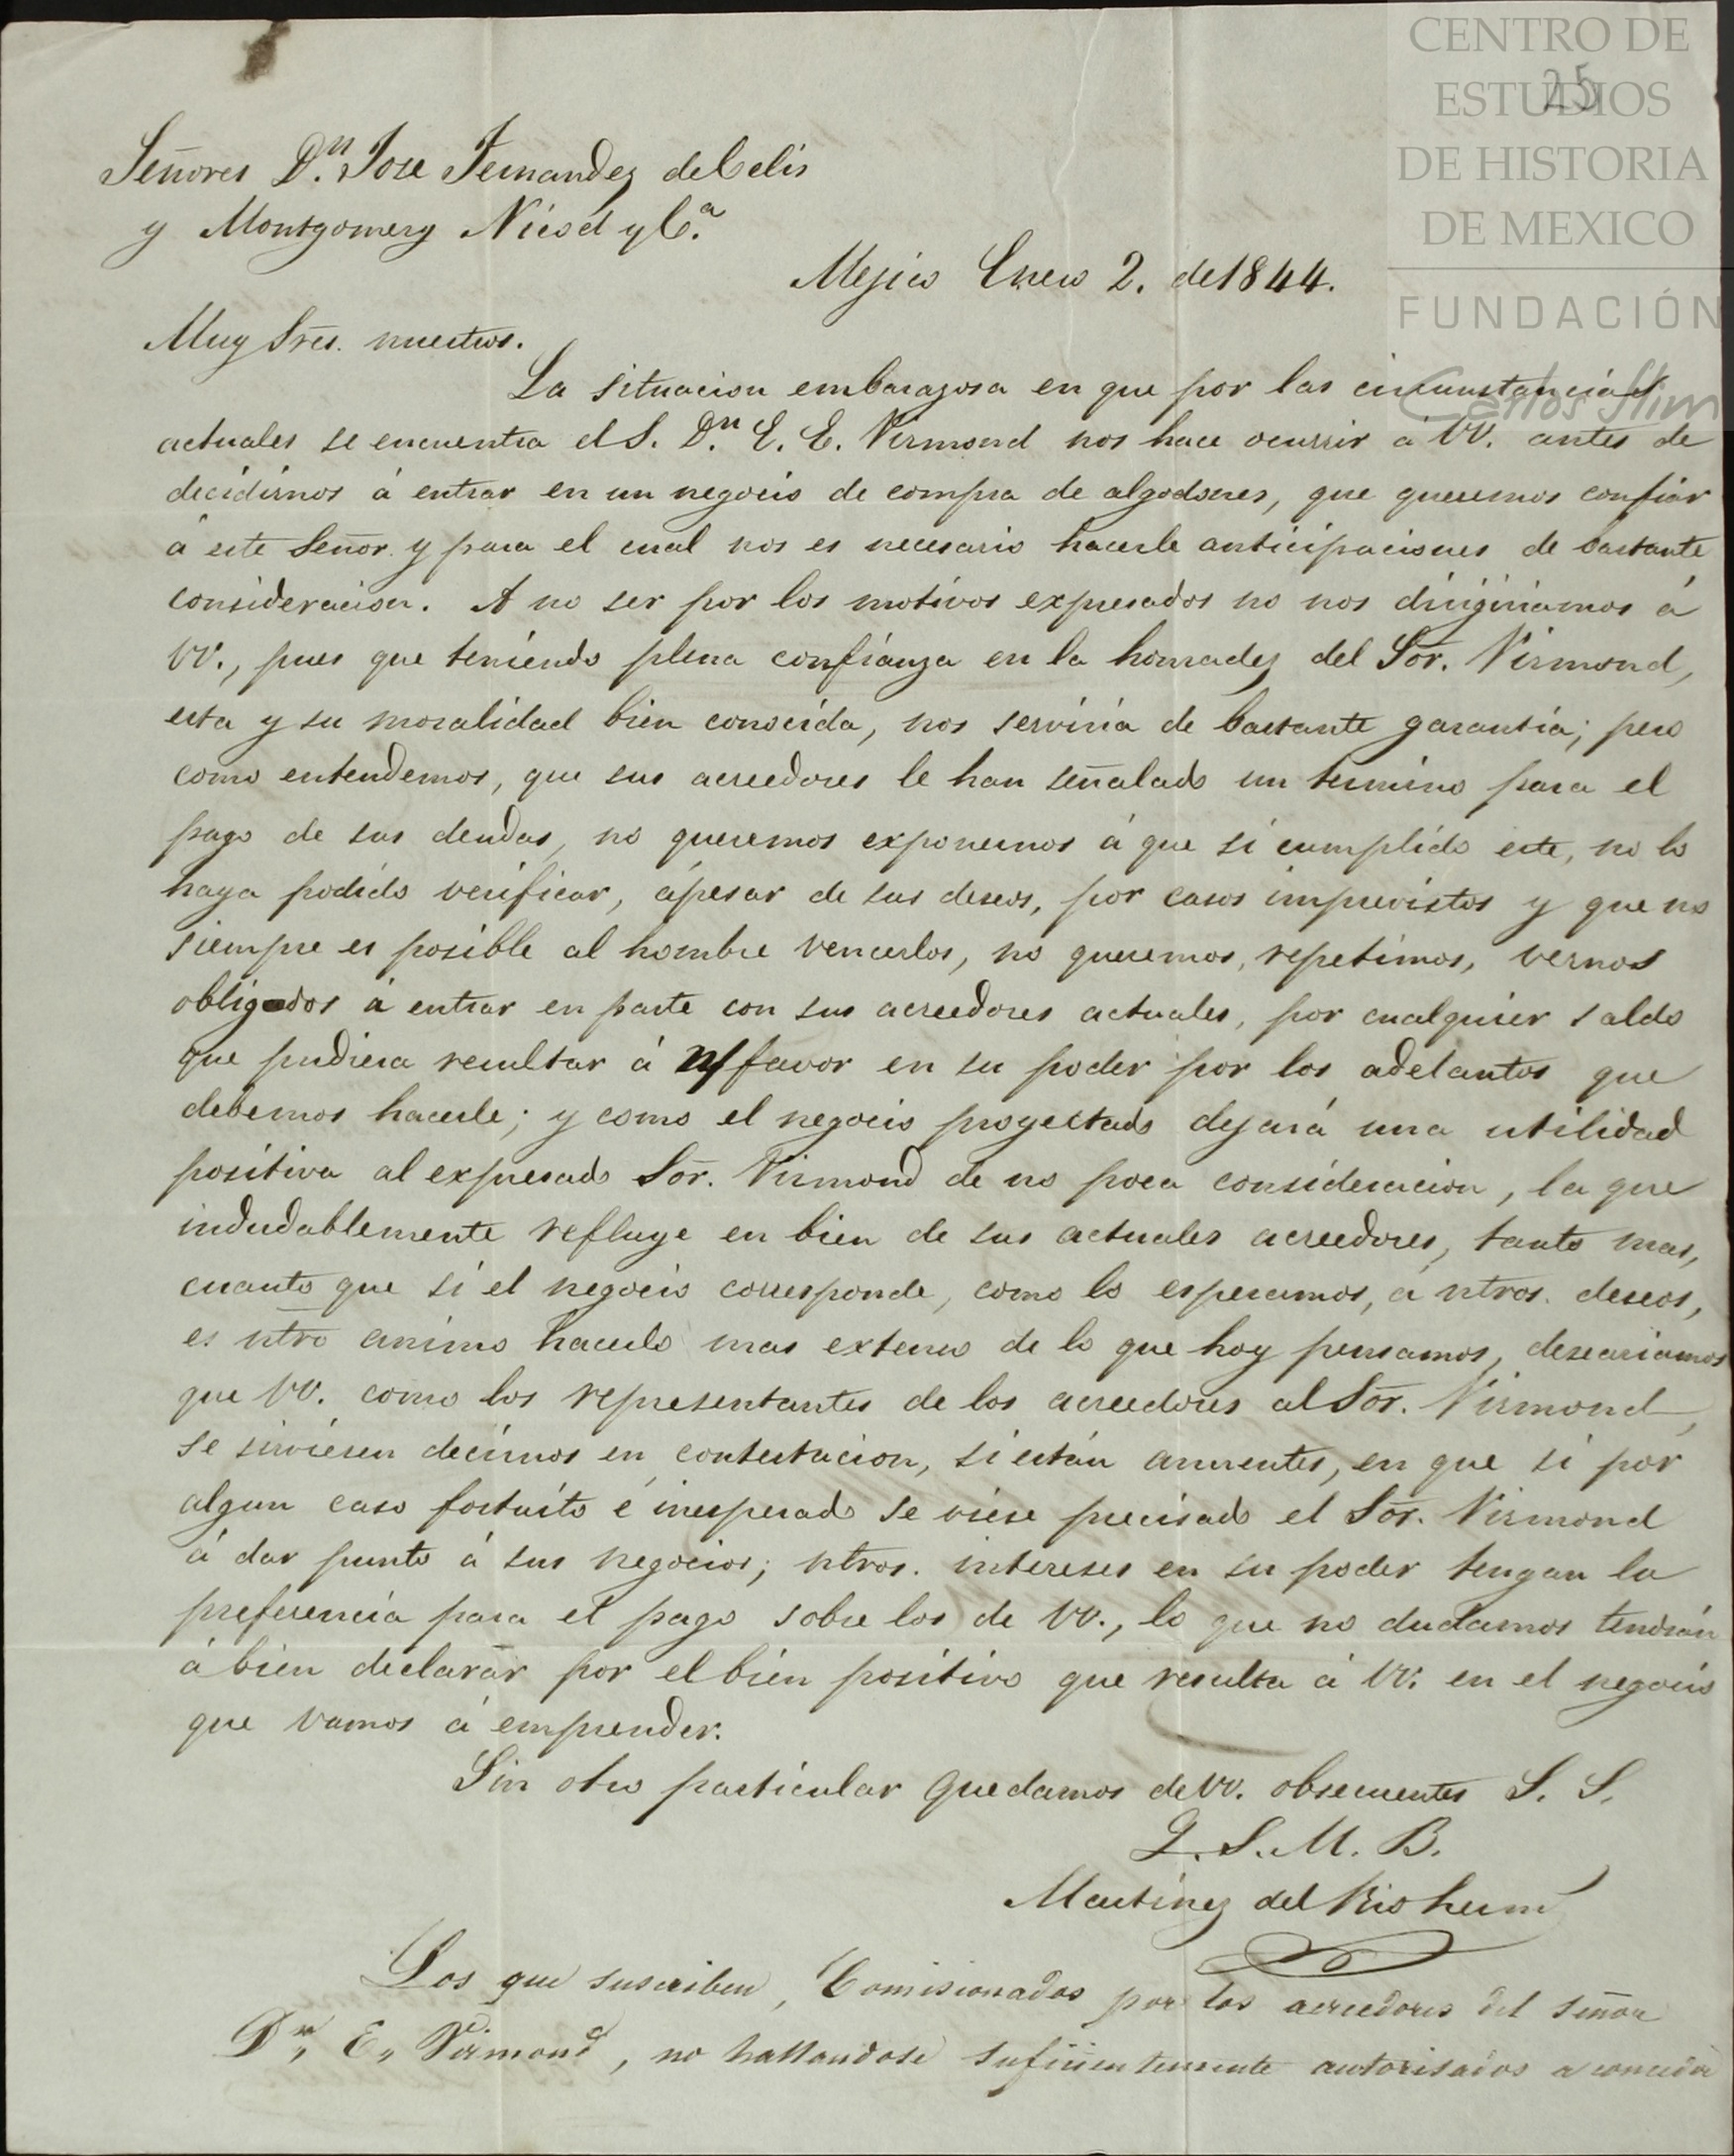 CENTRO DE
ESTUDIOS
DE HISTORIA
DE MEXICO
FUNDACIÓN
Carlos Slim
25
Señores Dn. Jose Fernandez de Celis
y Montgomery Nicod y Ca.
Mejico Enero 2. de 1844.
Muy Sres. nuestros.
La situacion embarazosa en que por las circunstancias
actuales se encuentra el S. Dn. E. E. Virmond nos hace ocurrir á VV. antes de
decidirnos á entrar en un negocio de compra de algodones, que queremos confiar
á este Señor y para el cual nos es necesario hacerle anticipaciones de bastante
consideracion. A no ser por los motivos expresados no nos dirigiriamos á
VV., pues que teniendo plena confianza en la honradez del Sor. Virmond,
esta y su moralidad bien conocida, nos serviria de bastante garantia; pero
como entendemos, que sus acreedores le han señalado un termino para el
pago de sus deudas, no queremos exponernos á que si cumplido este, no lo
haya podido verificar, ápesar de sus deseos, por casos imprevistos y que no
siempre es posible al hombre vencerlos, no queremos, repetimos, vernos
obligados á entrar en parte con sus acreedores actuales, por cualquier saldo
que pudiera resultar á N/favor en su poder por los adelantos que
debemos hacerle; y como el negocio proyectado dejará una utilidad
positiva al expresado Sor. Virmond de no poca consideracion, la que
indudablemente refluye en bien de sus actuales acreedores, tanto mas,
cuanto que si el negocio corresponde, como lo esperamos, á ntros. deseos,
es ntro animo hacerlo mas extenso de lo que hoy pensamos, deseariamos
que VV. como los representantes de los acreedores al Sor. Virmond,
se sirviesen decirnos en contestacion, si están anuentes, en que si por
algun caso fortuito é inesperado se viese precisado el Sor. Virmond
á dar punto á sus negocios; ntros. intereses en su poder tengan la
preferencia para el pago sobre los de VV., lo que no dudamos tendrán
á bien declarar por el bien positivo que resulta á VV. en el negocio
que vamos á emprender.
Sin otro particular quedamos de VV. obsecuentes S. S.
Q. S. M. B.
Martinez del Rio herms
Los que suscriben, Comisionados por los acreedores del señor
Dn. E. Virmond, no hallandose suficientemente autorisados a conceder